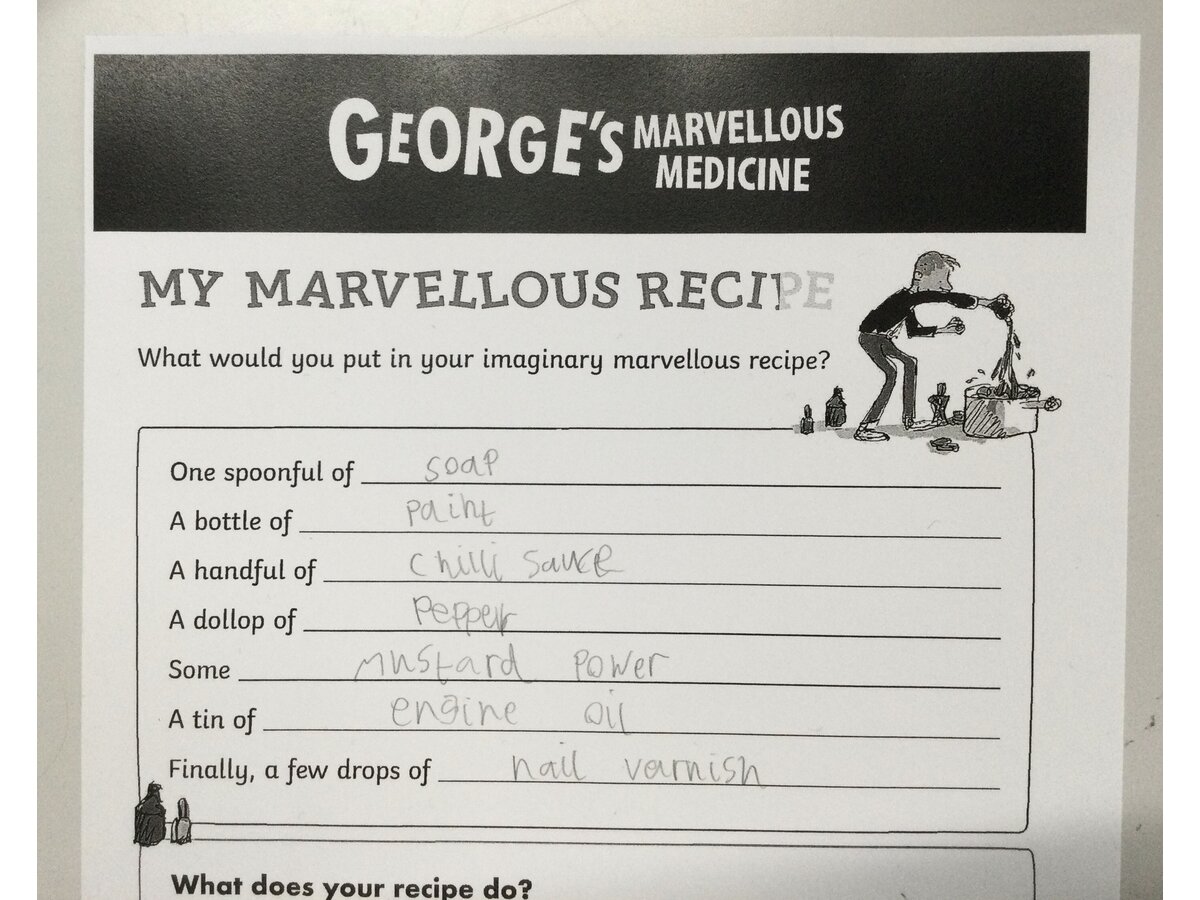 GEORGE'S MARVELLOUS
MEDICINE
MY MARVELLOUS RECIPE
What would you put in your imaginary marvellous recipe?
One spoonful of soap
A bottle of paint
A handful of chilli sauce
A dollop of Pepper
Some mustard power
A tin of engine oil
Finally, a few drops of nail varnish
What does your recipe do?